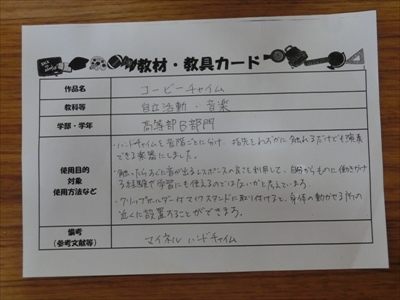 教材・教具カード
作品名 コービーチャイム
教科等 自立活動・音楽
学部・学年 高等部B部門
使用目的
対象
使用方法など
・ハンドチャイムを音階ごとに分け、指先でわずかに触れるだけでも演奏
できる楽器にしました。
・触ったらすぐに音が出るレスポンスの良さを利用して、自分からものに働きかけ
る経験や学習にも使えるのではないかと考えています。
・クリップホルダーやマイクスタンドに取り付けると、身体の動かせる所の
近くに設置することができます。
備考
(参考文献等) マイネル ハンドチャイム